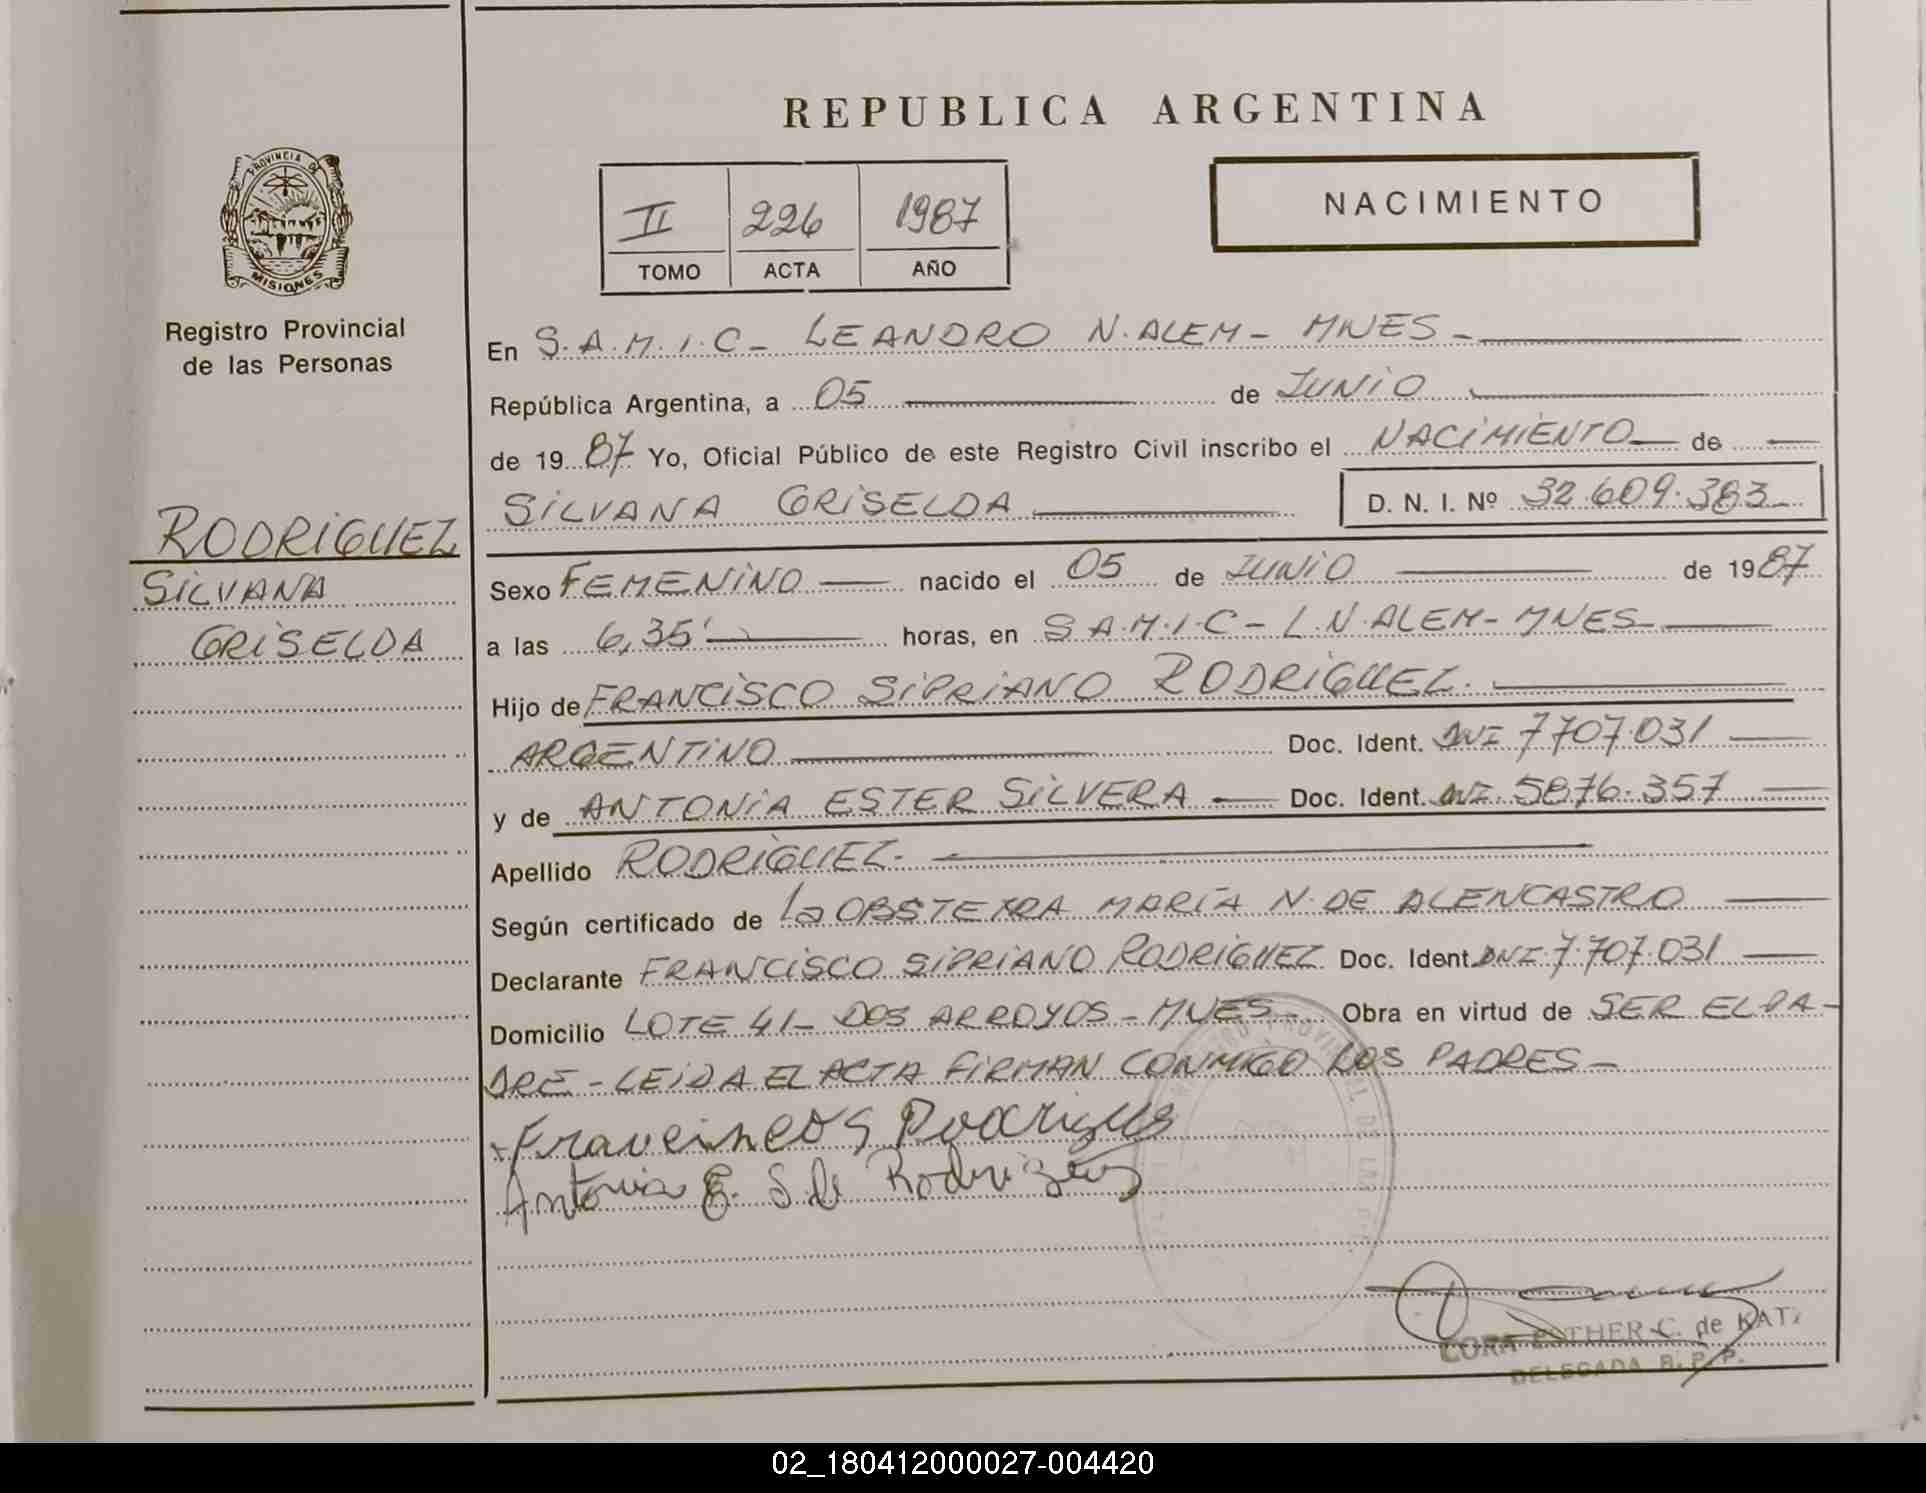 REPUBLICA ARGENTINA
PROVINCIA DE
MISIONES
Registro Provincial
de las Personas
II 226 1987
TOMO ACTA AÑO
NACIMIENTO
RODRIGUEZ
SILVANA
GRISELDA
En S.A.M.I.C - LEANDRO N. ALEM - MNES -
República Argentina, a 05 de JUNIO
de 1987 Yo, Oficial Público de este Registro Civil inscribo el NACIMIENTO de
SILVANA GRISELDA D. N. I. Nº 32.609.383
Sexo FEMENINO nacido el 05 de JUNIO de 1987
a las 6,35' horas, en S.A.M.I.C - L.N. ALEM - MNES
Hijo de FRANCISCO SIPRIANO RODRIGUEZ.
ARGENTINO Doc. Ident. DNI 7707.031
y de ANTONIA ESTER SILVERA Doc. Ident. DNI. 5876.357
Apellido RODRIGUEZ.
Según certificado de La OBSTETRA MARÍA N. DE ALENCASTRO
Declarante FRANCISCO SIPRIANO RODRIGUEZ Doc. Ident. DNI 7.707.031
Domicilio LOTE 41 - DOS ARROYOS - MNES - Obra en virtud de SER EL PA-
DRE - LEIDA EL ACTA FIRMAN CONMIGO LOS PADRES -
Antonia E. S. de Rodriguez
CORA ESTHER C. de KATZ
DELEGADA R. P. P.
02_180412000027-004420